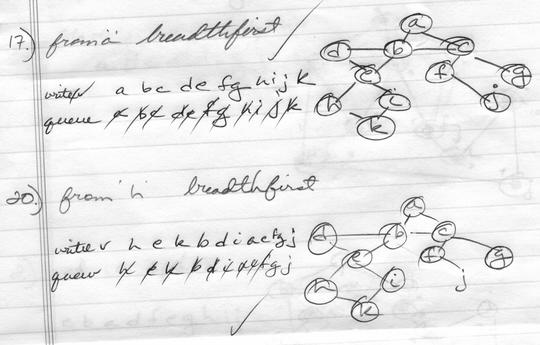 17.) from a breadthfirst
write v a b c d e f g h i j k
queue a b c d e f g h i j k
a
d b c
e f g
h i j
k
20.) from h breadthfirst
write v h e k b d i a c f g j
queue h e k b d i a c f g j
a
d b c
e f g
h i j
k